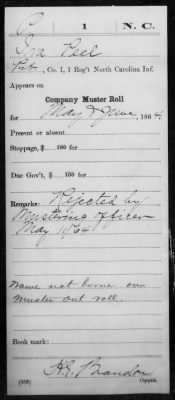 P 1 N. C.
Ira Peel
Pvt., Co. I, 1 Reg't North Carolina Inf.
Appears on
Company Muster Roll
for May & June, 1864.
Present or absent
Stoppage, $ 100 for
Due Gov't, $ 100 for
Remarks: Rejected by
Mustering officer
May 1864
Name not borne on
muster out roll.
Book mark:
H.E. Brandon
(858) Copyist.